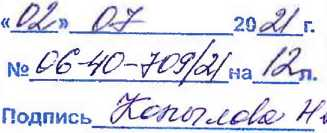 «02» 07 2021 г.
№ 06-40-709/21 на 12 л.
Подпись Копылова Н